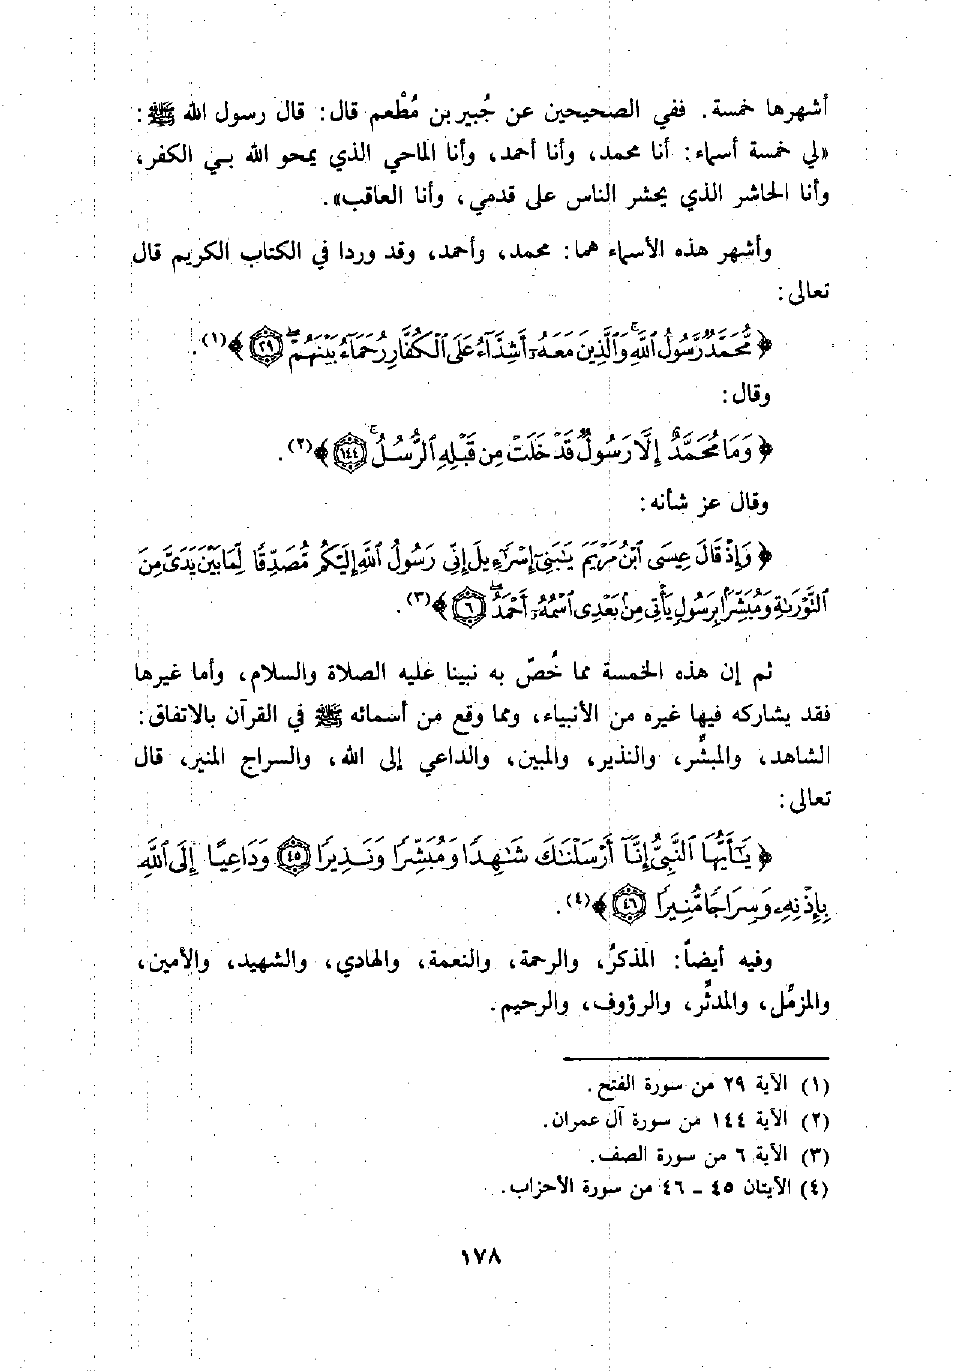 أشهرها خمسة. ففي الصحيحين عن جُبير بن مُطْعم قال: قال رسول الله ﷺ:
«لي خمسة أسماء: أنا محمد، وأنا أحمد، وأنا الماحي الذي يمحو الله بي الكفر،
وأنا الحاشر الذي يحشر الناس على قدمي، وأنا العاقب».
وأشهر هذه الأسماء هما: محمد، وأحمد، وقد وردا في الكتاب الكريم قال
تعالى:
﴿ مُّحَمَّدٌ رَّسُولُ ٱللَّهِ ۚ وَٱلَّذِينَ مَعَهُۥٓ أَشِدَّآءُ عَلَى ٱلْكُفَّارِ رُحَمَآءُ بَيْنَهُمْ ۖ ٢٩ ﴾(١).
وقال:
﴿ وَمَا مُحَمَّدٌ إِلَّا رَسُولٌ قَدْ خَلَتْ مِن قَبْلِهِ ٱلرُّسُلُ ۚ ١٤٤ ﴾(٢).
وقال عز شأنه:
﴿ وَإِذْ قَالَ عِيسَى ٱبْنُ مَرْيَمَ يَٰبَنِىٓ إِسْرَٰٓءِيلَ إِنِّى رَسُولُ ٱللَّهِ إِلَيْكُم مُّصَدِّقًا لِّمَا بَيْنَ يَدَىَّ مِنَ
ٱلتَّوْرَىٰةِ وَمُبَشِّرًۢا بِرَسُولٍ يَأْتِى مِنۢ بَعْدِى ٱسْمُهُۥٓ أَحْمَدُ ۖ ٦ ﴾(٣).
ثم إن هذه الخمسة مما خُصّ به نبينا عليه الصلاة والسلام، وأما غيرها
فقد يشاركه فيها غيره من الأنبياء، ومما وقع من أسمائه ﷺ في القرآن بالاتفاق:
الشاهد، والمبشِّر، والنذير، والمبين، والداعي إلى الله، والسراج المنير، قال
تعالى:
﴿ يَٰٓأَيُّهَا ٱلنَّبِىُّ إِنَّآ أَرْسَلْنَٰكَ شَٰهِدًا وَمُبَشِّرًا وَنَذِيرًا ٤٥ وَدَاعِيًا إِلَى ٱللَّهِ
بِإِذْنِهِۦ وَسِرَاجًا مُّنِيرًا ٤٦ ﴾(٤).
وفيه أيضاً: المذكرُ، والرحمة، والنعمة، والهادي، والشهيد، والأمين،
والمزمِّل، والمدثِّر، والرؤوف، والرحيم.
(١) الآية ٢٩ من سورة الفتح.
(٢) الآية ١٤٤ من سورة آل عمران.
(٣) الآية ٦ من سورة الصف.
(٤) الآيتان ٤٥ - ٤٦ من سورة الأحزاب.
١٧٨